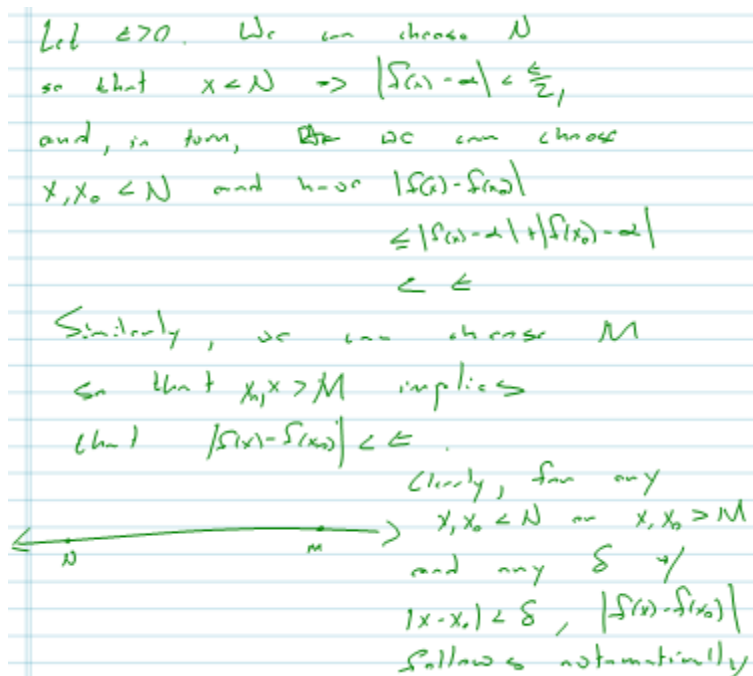 Let ε>0. We can choose N
so that x<N -> |f(x)-α| < ε/2,
and, in turn, we can choose
x,x₀ <N and have |f(x)-f(x₀)|
≤|f(x)-α|+|f(x₀)-α|
< ε
Similarly, we can choose M
so that x₀,x >M implies
that |f(x)-f(x₀)| < ε.
Clearly, for any
x,x₀ <N or x,x₀ >M
N M
and any δ w/
|x-x₀| < δ, |f(x)-f(x₀)|
follows automatically